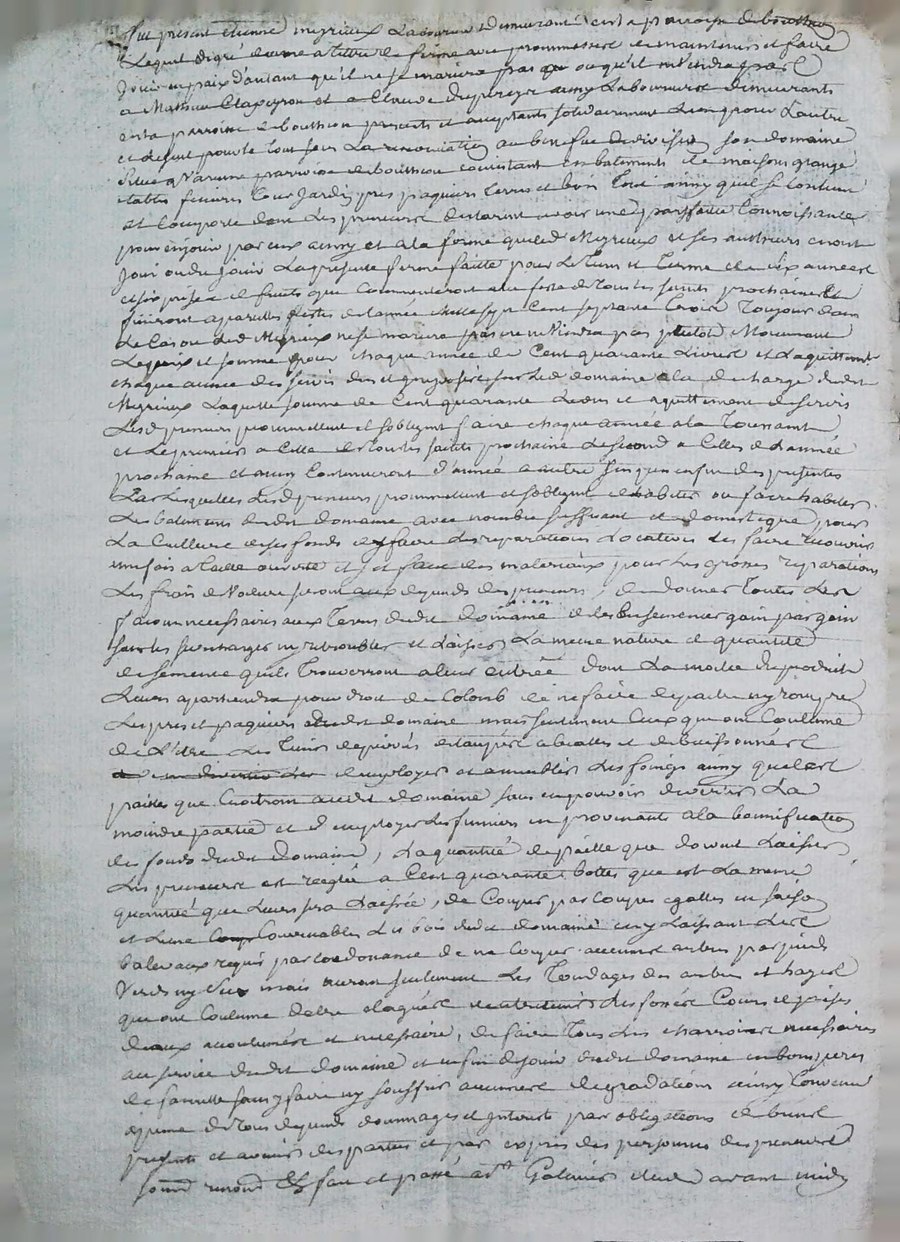 fut présent étienne meyrieux Laboureur demeurant en la parroisse de bouthéon
Lequel de gré donne a tittre de ferme avec prommesse de maintenir et faire
Jouir en paix d'autant qu'il ne se mariera pas ou qu'il ne viendra pas
a Mathieu Clapeyron et a Claude Dupreyer aussy Laboureurs demeurants
en la parroisse de bouthéon présents et acceptants solidairement L'un pour L'autre
et Le seul pour le tout sous La renonciation au benefice de division son domaine
situé a parroisse de bouthéon consistant en batiments de maison grange
étables fenieres Cour Jardin pres paquiers terres et bois Tout ainsy qu'il se Contient
et Comporte dont Les preneurs déclarent avoir une parfaitte Connoissance
pour en jouir par eux ainsy et a la forme que led Meyrieux et ses autheurs en ont
Joui ou du Jouir La présente ferme faitte pour Le Tems et Terme de six années
et six prises de fruits que Commenceront a la feste de Tous les saints prochaine Et
finiront a pareilles festes de l'année mille sept Cent septante trois Toujours dans
Le Cas ou Led Meyrieux ne se mariera pas ou ne viendra pas plutot Moyennant
Le prix et somme pour chaque année de Cent quarante Livres et L'aquittement
chaque année des servis dus et imposés sur Led domaine a la decharge dudit
Meyrieux Laquelle somme de Cent quarante Livres et aquittement de servis
Lesd preneurs prommettent et s'obligent faire chaque année a la Toussaint
et Le premier a Celle de Tous les saints prochaine Le second a Celles de L'année
prochaine et ainsy Continueront d'année a autre Jusques en fin des présentes
Par Lesquelles Lesd preneurs prommettent et s'obligent d'habiter ou faire habiter
Les batiments dudit domaine avec nombre suffisant de domestiques pour
La Culture de ses fonds d'y faire Les reparations Locatives Les faire recouvrir
une fois a taille ouverte et Il faut des materiaux pour Les grosses reparations
Les frais de voiture seront aux dépends des preneurs, de donner Toutes Les
façons necessaires aux Terres dudit Domaine de les ensemencer grain par grain
sans les surcharger ny retroubler et Laisser La meme nature et quantité
de semence qu'ils Trouverront a leur entrée dont La moitié du produit
Leur apartiendra pour droit de Colons de ne faire depaitre ny rompre
Les pres et paquiers dudit domaine mais seulement Ceux qui ont Coutume
de L'etre Les Tenir épierrés étaupés abeallés et débuissonnés
d'employer et amenbler Les foings ainsy que Les
pailles que Croitront audit domaine sans en pouvoir divertir La
moindre partie et d'employer Les fumiers en provenants a la bonnification
des fonds dudit Domaine, La quantité de paille que doivent Laisser
Les preneurs est reglée a Cent quarante bottes que est La meme
quantité que Leur sera Laissée, de Couper par Coupes egalles en saison
et Lune Convenables Les bois dudit domaine en y Laissant Les
baliveaux requis par L'ordonnance de ne Couper aucuns arbres par pieds
Verds ny secs mais auront seulement Les Tondages des arbres et hayes
que ont Coutume d'etre élagués de Les fossés Cours et prises
d'eaux accoutumés et necessaire, de faire Tous Les charrois necessaires
au service dudit domaine et enfin de jouir dudit domaine en bons peres
de famille sans y faire ny souffrir aucunes degradations ainsy Convenu
a peine de Tous depends dommages et Interets par obligations de biens
presents et avenir des parties et par exprès des personnes des preneurs
soumis renoncé Et fait et passé a St Galmier étude avant midy